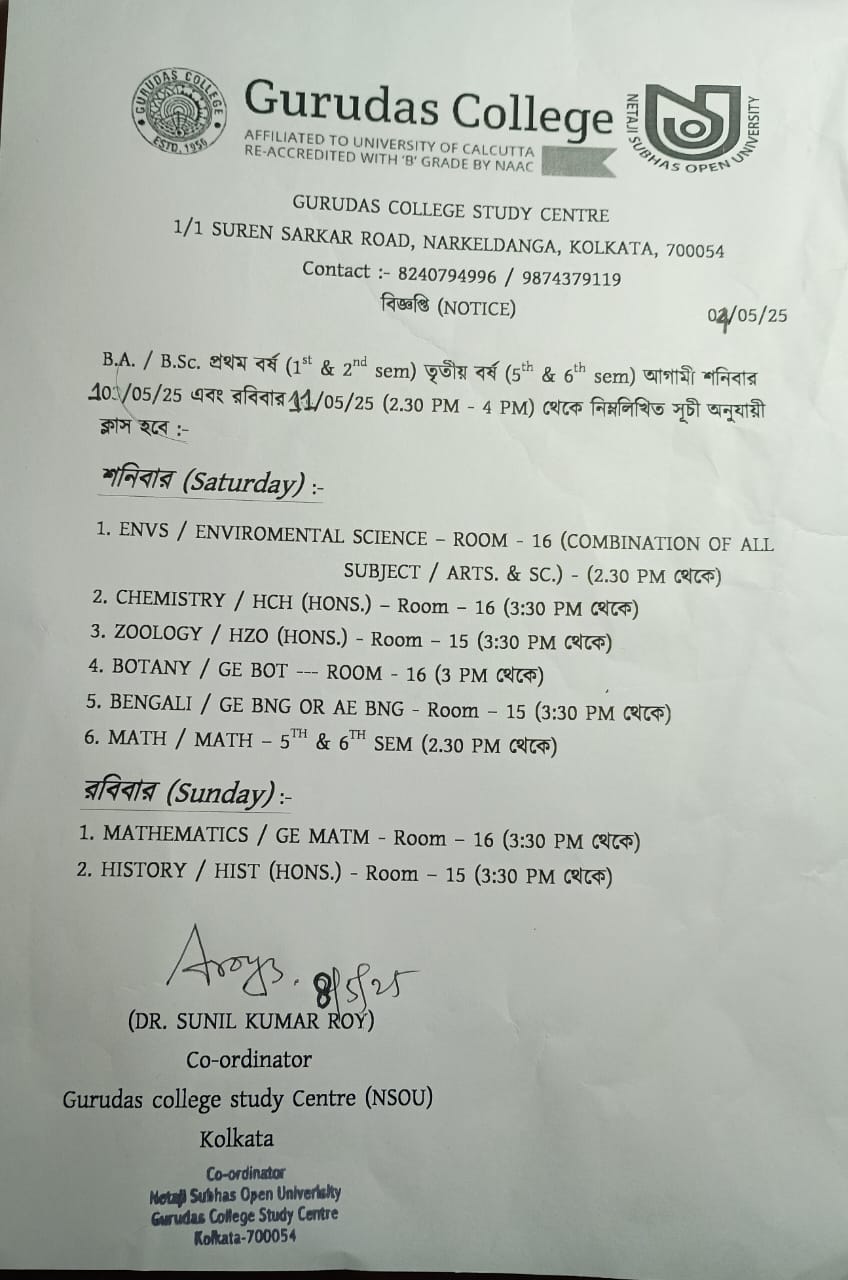 GURUDAS COLLEGE
ESTD. 1956
Gurudas College
AFFILIATED TO UNIVERSITY OF CALCUTTA
RE-ACCREDITED WITH 'B' GRADE BY NAAC
NETAJI SUBHAS OPEN UNIVERSITY
GURUDAS COLLEGE STUDY CENTRE
1/1 SUREN SARKAR ROAD, NARKELDANGA, KOLKATA, 700054
Contact :- 8240794996 / 9874379119
বিজ্ঞপ্তি (NOTICE)
/05/25
B.A. / B.Sc. প্রথম বর্ষ (1st & 2nd sem) তৃতীয় বর্ষ (5th & 6th sem) আগামী শনিবার
10/05/25 এবং রবিবার 11/05/25 (2.30 PM - 4 PM) থেকে নিম্নলিখিত সূচী অনুযায়ী
ক্লাস হবে :-
শনিবার (Saturday) :-
1. ENVS / ENVIROMENTAL SCIENCE – ROOM - 16 (COMBINATION OF ALL
SUBJECT / ARTS. & SC.) - (2.30 PM থেকে)
2. CHEMISTRY / HCH (HONS.) – Room – 16 (3:30 PM থেকে)
3. ZOOLOGY / HZO (HONS.) - Room – 15 (3:30 PM থেকে)
4. BOTANY / GE BOT --- ROOM - 16 (3 PM থেকে)
5. BENGALI / GE BNG OR AE BNG - Room – 15 (3:30 PM থেকে)
6. MATH / MATH – 5TH & 6TH SEM (2.30 PM থেকে)
রবিবার (Sunday) :-
1. MATHEMATICS / GE MATM - Room – 16 (3:30 PM থেকে)
2. HISTORY / HIST (HONS.) - Room – 15 (3:30 PM থেকে)
8/5/25
(DR. SUNIL KUMAR ROY)
Co-ordinator
Gurudas college study Centre (NSOU)
Kolkata
Co-ordinator
Netaji Subhas Open Univerisity
Gurudas College Study Centre
Kolkata-700054